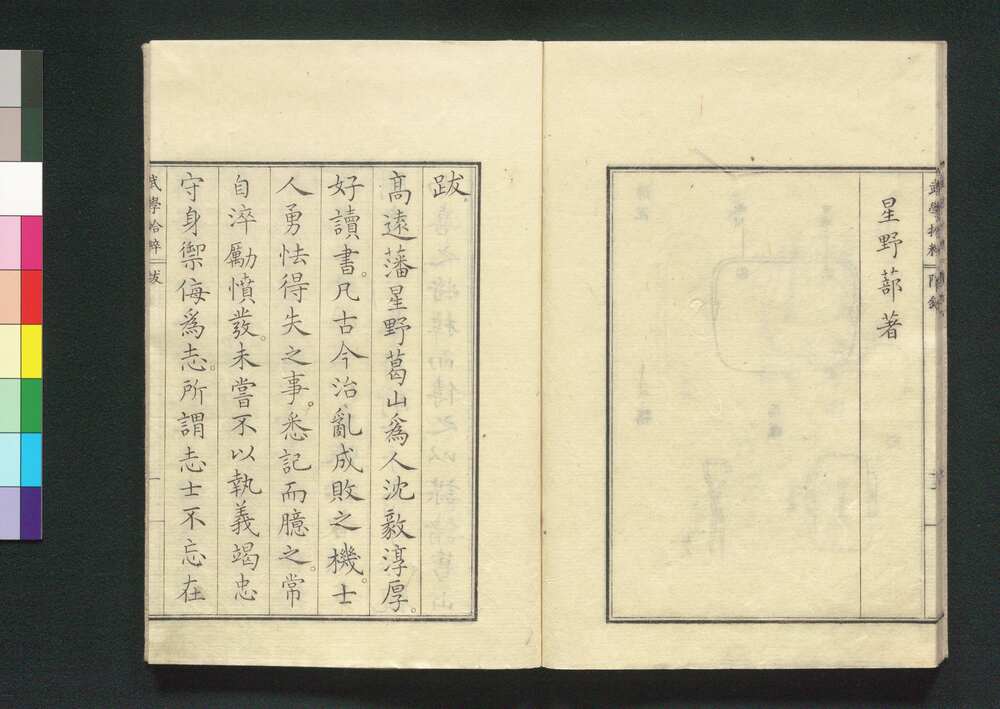 星野蔀著
跋
高遠藩星野葛山爲人沈毅淳厚。
好讀書。凡古今治亂成敗之機。士
人勇怯得失之事。悉記而臆之。常
自淬勵憤發。未嘗不以執義竭忠
守身禦侮爲志。所謂志士不忘在
武學拾粹 跋 一